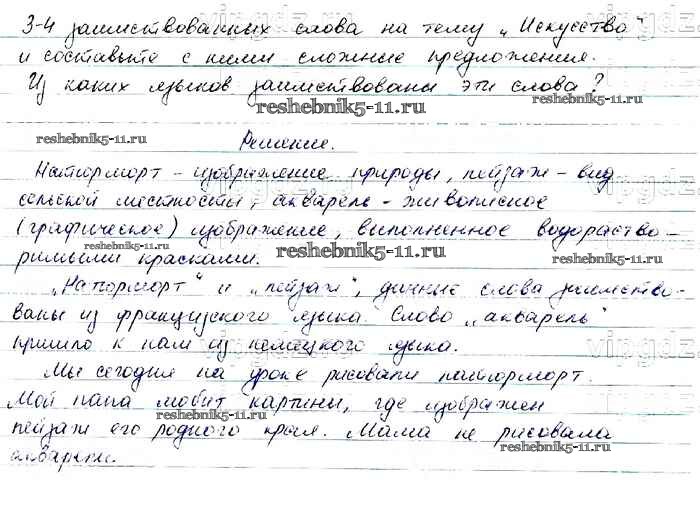 3-4 заимствованных слова на тему „Искусство"
и составьте с ними сложные предложения.
Из каких языков заимствованы эти слова?
reshebnik5-11.ru
reshebnik5-11.ru
reshebnik5-11.ru
Решение.
Натюрморт - изображение природы, пейзаж - вид
reshebnik5-11.ru
сельской местности, акварель - живописное
(графическое) изображение, выполненное водораство-
reshebnik5-11.ru
reshebnik5-11.ru
reshebnik5-11.ru
римыми красками.
„Натюрморт" и „пейзаж", данные слова заимство-
ваны из французского языка. Слово „акварель"
пришло к нам из немецкого языка.
vipgdz
Мы сегодня на уроке рисовали натюрморт.
Мой папа любит картины, где изображен
reshebnik5-11.ru
reshebnik5-11.ru
пейзаж его родного края. Мама не рисовала
акварели.